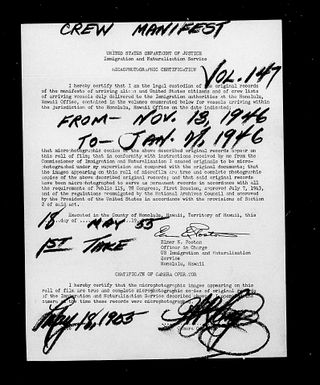 CREW MANIFEST
UNITED STATES DEPARTMENT OF JUSTICE
Immigration and Naturalization Service
MICROPHOTOGRAPHIC CERTIFICATION
VOL. 147
I hereby certify that I am the legal custodian of the original records
of the manifests of arriving aliens and United States citizens and of crew lists
of arriving vessels duly delivered to the immigration authorities at the Honolulu,
Hawaii Office, contained in the volumes enumerated below for vessels arriving within
the jurisdiction of the Honolulu, Hawaii Office on the date indicated:
FROM - NOV. 13, 1946
TO - JAN. 1946
that microphotographic copies of the above described original records appear on
this roll of film that in conformity with instructions received by me from the
Commissioner of Immigration and Naturalization I caused originals to be micro-
photographed under my supervision and the original documents; that
the images appearing on this roll of microfilm are true and complete photographic
copies of the above described original records; and that said original records
have been microphotographed to serve as permanent records in accordance with all
the requirements of Public 115, 78 Congress, First Session, approved July 7, 1943,
and of the regulations promulgated by the National Archives Council and approved by
the President of the United States in accordance with the provisions of Section
2 of said act.
Executed in the County of Honolulu, Territory of Hawaii, this
18 day of MAY 19 55
1ST TAKE
Elmer E. Poston
Officer in Charge
US Immigration and Naturalization
Service
Honolulu, Hawaii
CERTIFICATE OF CAMERA OPERATOR
I hereby certify that the microphotographic images appearing on this
roll of film are true and complete microphotographic copies of original records
of the Immigration and Naturalization Service described
camera after these records were microphotographed
May 18, 1955